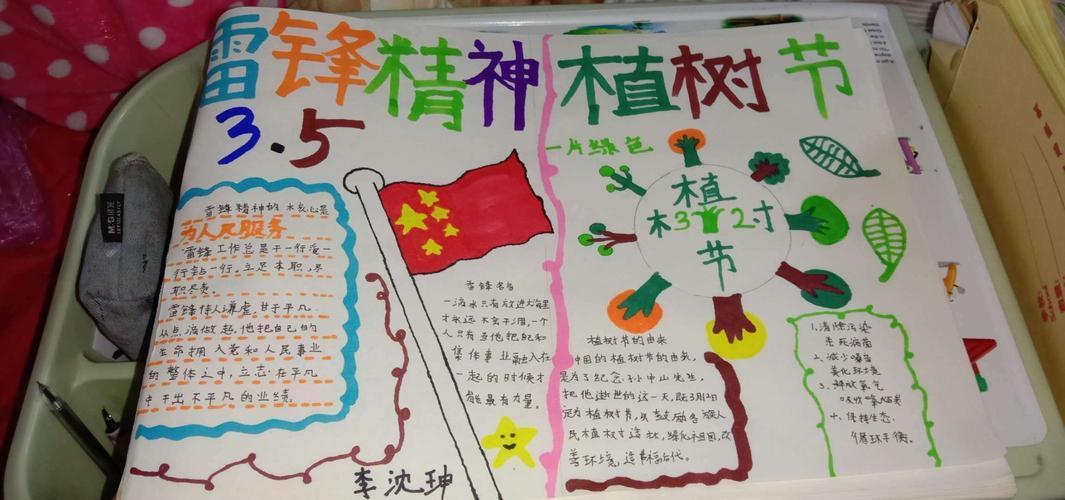 雷锋精神
3.5
雷锋精神的核心是
为人民服务
雷锋工作总是干一行爱一
行钻一行。立足本职,尽
职尽责。
雷锋待人谦虚,甘于平凡
从点滴做起,他把自己的
生命拥入党和人民事业
的整体之中,立志在平凡
中干出不平凡的业绩。
雷锋名言
一滴水只有放进大海里
才永远不会干涸,一个
人只有当他把自己和
集体事业融入在
一起的时候才
能最有力量。
李沈珅
植树节
一片绿色
植
木3 12寸
节
植树节的由来
中国的植树节的由来,
是为了纪念孙中山先生,
把他逝世的这一天,既3月12日
定为植树节,以鼓励各族人
民植树造林,绿化祖国,改
善环境,造福后代。
1.清除污染
杀死病菌
2.减少噪音
美化环境
3.释放氧气
4.保持生态
循环平衡。